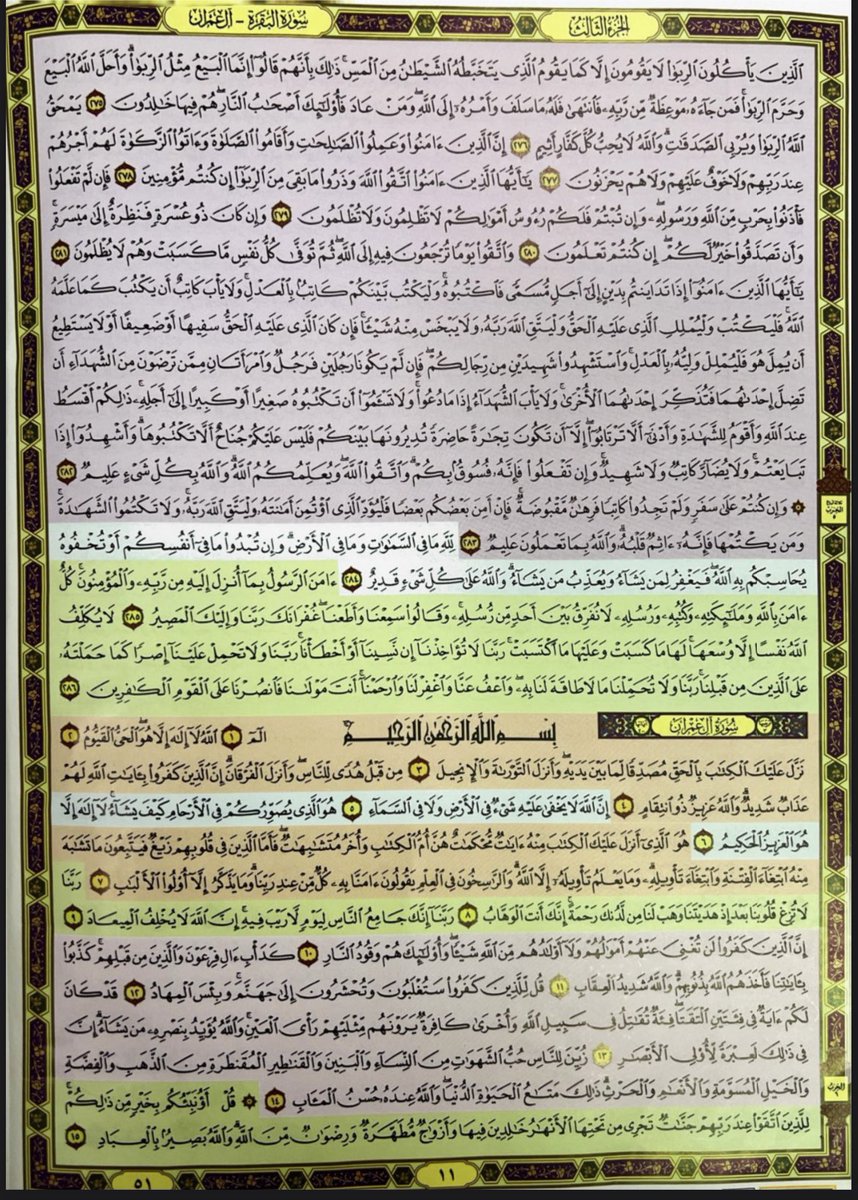 الجزء الثالث
سورة البقرة - آل عمران
الَّذِينَ يَأْكُلُونَ الرِّبَوٰا۟ لَا يَقُومُونَ إِلَّا كَمَا يَقُومُ الَّذِى يَتَخَبَّطُهُ الشَّيْطَٰنُ مِنَ الْمَسِّ ۚ ذَٰلِكَ بِأَنَّهُمْ قَالُوٓا۟ إِنَّمَا الْبَيْعُ مِثْلُ الرِّبَوٰا۟ ۗ وَأَحَلَّ اللَّهُ الْبَيْعَ
وَحَرَّمَ الرِّبَوٰا۟ ۚ فَمَن جَآءَهُۥ مَوْعِظَةٌ مِّن رَّبِّهِۦ فَانتَهَىٰ فَلَهُۥ مَا سَلَفَ وَأَمْرُهُۥٓ إِلَى اللَّهِ ۖ وَمَنْ عَادَ فَأُو۟لَٰٓئِكَ أَصْحَٰبُ النَّارِ ۖ هُمْ فِيهَا خَٰلِدُونَ ٢٧٥ يَمْحَقُ
اللَّهُ الرِّبَوٰا۟ وَيُرْبِى الصَّدَقَٰتِ ۗ وَاللَّهُ لَا يُحِبُّ كُلَّ كَفَّارٍ أَثِيمٍ ٢٧٦ إِنَّ الَّذِينَ ءَامَنُوا۟ وَعَمِلُوا۟ الصَّٰلِحَٰتِ وَأَقَامُوا۟ الصَّلَوٰةَ وَءَاتَوُا۟ الزَّكَوٰةَ لَهُمْ أَجْرُهُمْ
عِندَ رَبِّهِمْ وَلَا خَوْفٌ عَلَيْهِمْ وَلَا هُمْ يَحْزَنُونَ ٢٧٧ يَٰٓأَيُّهَا الَّذِينَ ءَامَنُوا۟ اتَّقُوا۟ اللَّهَ وَذَرُوا۟ مَا بَقِىَ مِنَ الرِّبَوٰٓا۟ إِن كُنتُم مُّؤْمِنِينَ ٢٧٨ فَإِن لَّمْ تَفْعَلُوا۟
فَأْذَنُوا۟ بِحَرْبٍ مِّنَ اللَّهِ وَرَسُولِهِۦ ۖ وَإِن تُبْتُمْ فَلَكُمْ رُءُوسُ أَمْوَٰلِكُمْ لَا تَظْلِمُونَ وَلَا تُظْلَمُونَ ٢٧٩ وَإِن كَانَ ذُو عُسْرَةٍ فَنَظِرَةٌ إِلَىٰ مَيْسَرَةٍ ۚ
وَأَن تَصَدَّقُوا۟ خَيْرٌ لَّكُمْ ۖ إِن كُنتُمْ تَعْلَمُونَ ٢٨٠ وَاتَّقُوا۟ يَوْمًا تُرْجَعُونَ فِيهِ إِلَى اللَّهِ ۖ ثُمَّ تُوَفَّىٰ كُلُّ نَفْسٍ مَّا كَسَبَتْ وَهُمْ لَا يُظْلَمُونَ ٢٨١
يَٰٓأَيُّهَا الَّذِينَ ءَامَنُوٓا۟ إِذَا تَدَايَنتُم بِدَيْنٍ إِلَىٰٓ أَجَلٍ مُّسَمًّى فَاكْتُبُوهُ ۚ وَلْيَكْتُب بَّيْنَكُمْ كَاتِبٌۢ بِالْعَدْلِ ۚ وَلَا يَأْبَ كَاتِبٌ أَن يَكْتُبَ كَمَا عَلَّمَهُ
اللَّهُ ۚ فَلْيَكْتُبْ وَلْيُمْلِلِ الَّذِى عَلَيْهِ الْحَقُّ وَلْيَتَّقِ اللَّهَ رَبَّهُۥ وَلَا يَبْخَسْ مِنْهُ شَيْـًٔا ۚ فَإِن كَانَ الَّذِى عَلَيْهِ الْحَقُّ سَفِيهًا أَوْ ضَعِيفًا أَوْ لَا يَسْتَطِيعُ
أَن يُمِلَّ هُوَ فَلْيُمْلِلْ وَلِيُّهُۥ بِالْعَدْلِ ۚ وَاسْتَشْهِدُوا۟ شَهِيدَيْنِ مِن رِّجَالِكُمْ ۖ فَإِن لَّمْ يَكُونَا رَجُلَيْنِ فَرَجُلٌ وَامْرَأَتَانِ مِمَّن تَرْضَوْنَ مِنَ الشُّهَدَآءِ أَن
تَضِلَّ إِحْدَىٰهُمَا فَتُذَكِّرَ إِحْدَىٰهُمَا الْأُخْرَىٰ ۚ وَلَا يَأْبَ الشُّهَدَآءُ إِذَا مَا دُعُوا۟ ۚ وَلَا تَسْـَٔمُوٓا۟ أَن تَكْتُبُوهُ صَغِيرًا أَوْ كَبِيرًا إِلَىٰٓ أَجَلِهِۦ ۚ ذَٰلِكُمْ أَقْسَطُ
عِندَ اللَّهِ وَأَقْوَمُ لِلشَّهَٰدَةِ وَأَدْنَىٰٓ أَلَّا تَرْتَابُوٓا۟ ۖ إِلَّآ أَن تَكُونَ تِجَٰرَةً حَاضِرَةً تُدِيرُونَهَا بَيْنَكُمْ فَلَيْسَ عَلَيْكُمْ جُنَاحٌ أَلَّا تَكْتُبُوهَا ۗ وَأَشْهِدُوٓا۟ إِذَا
تَبَايَعْتُمْ ۚ وَلَا يُضَآرَّ كَاتِبٌ وَلَا شَهِيدٌ ۚ وَإِن تَفْعَلُوا۟ فَإِنَّهُۥ فُسُوقٌۢ بِكُمْ ۗ وَاتَّقُوا۟ اللَّهَ ۖ وَيُعَلِّمُكُمُ اللَّهُ ۗ وَاللَّهُ بِكُلِّ شَىْءٍ عَلِيمٌ ٢٨٢
۞ وَإِن كُنتُمْ عَلَىٰ سَفَرٍ وَلَمْ تَجِدُوا۟ كَاتِبًا فَرِهَٰنٌ مَّقْبُوضَةٌ ۖ فَإِنْ أَمِنَ بَعْضُكُم بَعْضًا فَلْيُؤَدِّ الَّذِى اؤْتُمِنَ أَمَٰنَتَهُۥ وَلْيَتَّقِ اللَّهَ رَبَّهُۥ ۗ وَلَا تَكْتُمُوا۟ الشَّهَٰدَةَ ۚ
وَمَن يَكْتُمْهَا فَإِنَّهُۥٓ ءَاثِمٌ قَلْبُهُۥ ۗ وَاللَّهُ بِمَا تَعْمَلُونَ عَلِيمٌ ٢٨٣ لِّلَّهِ مَا فِى السَّمَٰوَٰتِ وَمَا فِى الْأَرْضِ ۗ وَإِن تُبْدُوا۟ مَا فِىٓ أَنفُسِكُمْ أَوْ تُخْفُوهُ
يُحَاسِبْكُم بِهِ اللَّهُ ۖ فَيَغْفِرُ لِمَن يَشَآءُ وَيُعَذِّبُ مَن يَشَآءُ ۗ وَاللَّهُ عَلَىٰ كُلِّ شَىْءٍ قَدِيرٌ ٢٨٤ ءَامَنَ الرَّسُولُ بِمَآ أُنزِلَ إِلَيْهِ مِن رَّبِّهِۦ وَالْمُؤْمِنُونَ ۚ كُلٌّ
ءَامَنَ بِاللَّهِ وَمَلَٰٓئِكَتِهِۦ وَكُتُبِهِۦ وَرُسُلِهِۦ لَا نُفَرِّقُ بَيْنَ أَحَدٍ مِّن رُّسُلِهِۦ ۚ وَقَالُوا۟ سَمِعْنَا وَأَطَعْنَا ۖ غُفْرَانَكَ رَبَّنَا وَإِلَيْكَ الْمَصِيرُ ٢٨٥ لَا يُكَلِّفُ
اللَّهُ نَفْسًا إِلَّا وُسْعَهَا ۚ لَهَا مَا كَسَبَتْ وَعَلَيْهَا مَا اكْتَسَبَتْ ۗ رَبَّنَا لَا تُؤَاخِذْنَآ إِن نَّسِينَآ أَوْ أَخْطَأْنَا ۚ رَبَّنَا وَلَا تَحْمِلْ عَلَيْنَآ إِصْرًا كَمَا حَمَلْتَهُۥ
عَلَى الَّذِينَ مِن قَبْلِنَا ۚ رَبَّنَا وَلَا تُحَمِّلْنَا مَا لَا طَاقَةَ لَنَا بِهِۦ ۖ وَاعْفُ عَنَّا وَاغْفِرْ لَنَا وَارْحَمْنَآ ۚ أَنتَ مَوْلَىٰنَا فَانصُرْنَا عَلَى الْقَوْمِ الْكَٰفِرِينَ ٢٨٦
سورة آل عمران
بِسْمِ اللَّهِ الرَّحْمَٰنِ الرَّحِيمِ
الٓمٓ ١ اللَّهُ لَآ إِلَٰهَ إِلَّا هُوَ الْحَىُّ الْقَيُّومُ ٢
نَزَّلَ عَلَيْكَ الْكِتَٰبَ بِالْحَقِّ مُصَدِّقًا لِّمَا بَيْنَ يَدَيْهِ وَأَنزَلَ التَّوْرَىٰةَ وَالْإِنجِيلَ ٣ مِن قَبْلُ هُدًى لِّلنَّاسِ وَأَنزَلَ الْفُرْقَانَ ۗ إِنَّ الَّذِينَ كَفَرُوا۟ بِـَٔايَٰتِ اللَّهِ لَهُمْ
عَذَابٌ شَدِيدٌ ۗ وَاللَّهُ عَزِيزٌ ذُو انتِقَامٍ ٤ إِنَّ اللَّهَ لَا يَخْفَىٰ عَلَيْهِ شَىْءٌ فِى الْأَرْضِ وَلَا فِى السَّمَآءِ ٥ هُوَ الَّذِى يُصَوِّرُكُمْ فِى الْأَرْحَامِ كَيْفَ يَشَآءُ ۚ لَآ إِلَٰهَ إِلَّا
هُوَ الْعَزِيزُ الْحَكِيمُ ٦ هُوَ الَّذِىٓ أَنزَلَ عَلَيْكَ الْكِتَٰبَ مِنْهُ ءَايَٰتٌ مُّحْكَمَٰتٌ هُنَّ أُمُّ الْكِتَٰبِ وَأُخَرُ مُتَشَٰبِهَٰتٌ ۖ فَأَمَّا الَّذِينَ فِى قُلُوبِهِمْ زَيْغٌ فَيَتَّبِعُونَ مَا تَشَٰبَهَ
مِنْهُ ابْتِغَآءَ الْفِتْنَةِ وَابْتِغَآءَ تَأْوِيلِهِۦ ۗ وَمَا يَعْلَمُ تَأْوِيلَهُۥٓ إِلَّا اللَّهُ ۗ وَالرَّٰسِخُونَ فِى الْعِلْمِ يَقُولُونَ ءَامَنَّا بِهِۦ كُلٌّ مِّنْ عِندِ رَبِّنَا ۗ وَمَا يَذَّكَّرُ إِلَّآ أُو۟لُوا۟ الْأَلْبَٰبِ ٧ رَبَّنَا
لَا تُزِغْ قُلُوبَنَا بَعْدَ إِذْ هَدَيْتَنَا وَهَبْ لَنَا مِن لَّدُنكَ رَحْمَةً ۚ إِنَّكَ أَنتَ الْوَهَّابُ ٨ رَبَّنَآ إِنَّكَ جَامِعُ النَّاسِ لِيَوْمٍ لَّا رَيْبَ فِيهِ ۚ إِنَّ اللَّهَ لَا يُخْلِفُ الْمِيعَادَ ٩
إِنَّ الَّذِينَ كَفَرُوا۟ لَن تُغْنِىَ عَنْهُمْ أَمْوَٰلُهُمْ وَلَآ أَوْلَٰدُهُم مِّنَ اللَّهِ شَيْـًٔا ۖ وَأُو۟لَٰٓئِكَ هُمْ وَقُودُ النَّارِ ١٠ كَدَأْبِ ءَالِ فِرْعَوْنَ وَالَّذِينَ مِن قَبْلِهِمْ ۚ كَذَّبُوا۟
بِـَٔايَٰتِنَا فَأَخَذَهُمُ اللَّهُ بِذُنُوبِهِمْ ۗ وَاللَّهُ شَدِيدُ الْعِقَابِ ١١ قُل لِّلَّذِينَ كَفَرُوا۟ سَتُغْلَبُونَ وَتُحْشَرُونَ إِلَىٰ جَهَنَّمَ ۚ وَبِئْسَ الْمِهَادُ ١٢ قَدْ كَانَ
لَكُمْ ءَايَةٌ فِى فِئَتَيْنِ الْتَقَتَا ۖ فِئَةٌ تُقَٰتِلُ فِى سَبِيلِ اللَّهِ وَأُخْرَىٰ كَافِرَةٌ يَرَوْنَهُم مِّثْلَيْهِمْ رَأْىَ الْعَيْنِ ۚ وَاللَّهُ يُؤَيِّدُ بِنَصْرِهِۦ مَن يَشَآءُ ۗ إِنَّ
فِى ذَٰلِكَ لَعِبْرَةً لِّأُو۟لِى الْأَبْصَٰرِ ١٣ زُيِّنَ لِلنَّاسِ حُبُّ الشَّهَوَٰتِ مِنَ النِّسَآءِ وَالْبَنِينَ وَالْقَنَٰطِيرِ الْمُقَنطَرَةِ مِنَ الذَّهَبِ وَالْفِضَّةِ
وَالْخَيْلِ الْمُسَوَّمَةِ وَالْأَنْعَٰمِ وَالْحَرْثِ ۗ ذَٰلِكَ مَتَٰعُ الْحَيَوٰةِ الدُّنْيَا ۖ وَاللَّهُ عِندَهُۥ حُسْنُ الْمَـَٔابِ ١٤ ۞ قُلْ أَؤُنَبِّئُكُم بِخَيْرٍ مِّن ذَٰلِكُمْ ۚ
لِلَّذِينَ اتَّقَوْا۟ عِندَ رَبِّهِمْ جَنَّٰتٌ تَجْرِى مِن تَحْتِهَا الْأَنْهَٰرُ خَٰلِدِينَ فِيهَا وَأَزْوَٰجٌ مُّطَهَّرَةٌ وَرِضْوَٰنٌ مِّنَ اللَّهِ ۗ وَاللَّهُ بَصِيرٌۢ بِالْعِبَادِ ١٥
١١
٥١